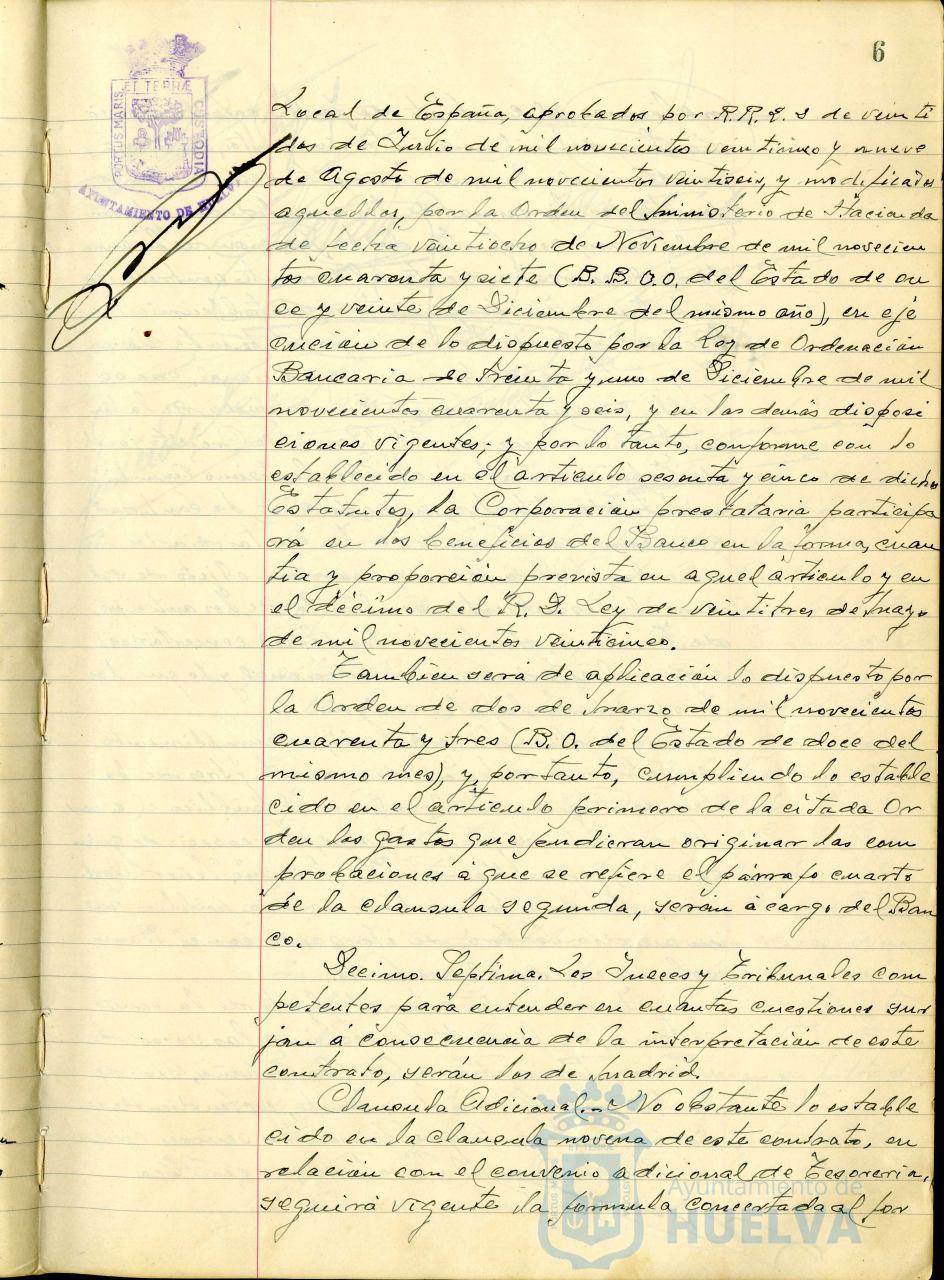 6
PORTUS MARIS
ET TERRÆ
CUSTODIA
AYUNTAMIENTO DE HUELVA
Local de España, aprobados por R.R. D D de veinti
dos de Julio de mil novecientos veinticinco y nueve
de Agosto de mil novecientos veintiseis, y modificados
aquellos, por la Orden del Ministerio de Hacienda
de fecha veintiocho de Noviembre de mil novecien
tos cuarenta y siete (B. B. O.O. del Estado de on
ce y veinte de Diciembre del mismo año), en eje
cución de lo dispuesto por la Ley de Ordenación
Bancaria de treinta y uno de Diciembre de mil
novecientos cuarenta y seis, y en las demás disposi
ciones vigentes; y por lo tanto, conforme con lo
establecido en el articulo sesenta y cinco de dichos
Estatutos, la Corporación prestataria participa
rá en los beneficios del Banco en la forma, cuan
tia y proporción prevista en aquel articulo y en
el décimo del R. D. Ley de veintitres de Mayo
de mil novecientos veinticinco.
Tambien será de aplicación lo dispuesto por
la Orden de dos de Marzo de mil novecientos
cuarenta y tres (B. O. del Estado de doce del
mismo mes), y, por tanto, cumpliendo lo estable
cido en el articulo primero de la citada Or
den los gastos que pudieran originar las com
probaciones á que se refiere el párrafo cuarto
de la clausula segunda, serán á cargo del Ban
co.
Decimo. Septima. Los Jueces y Tribunales com
petentes para entender en cuantas cuestiones sur
jan á consecuencia de la interpretación de este
contrato, serán los de Madrid.
Clausula Adicional.- No obstante lo estable
cido en la clausula novena de este contrato, en
relación con el convenio adicional de Tesoreria,
seguirá vigente la formula concertada al for
Ayuntamiento de
HUELVA